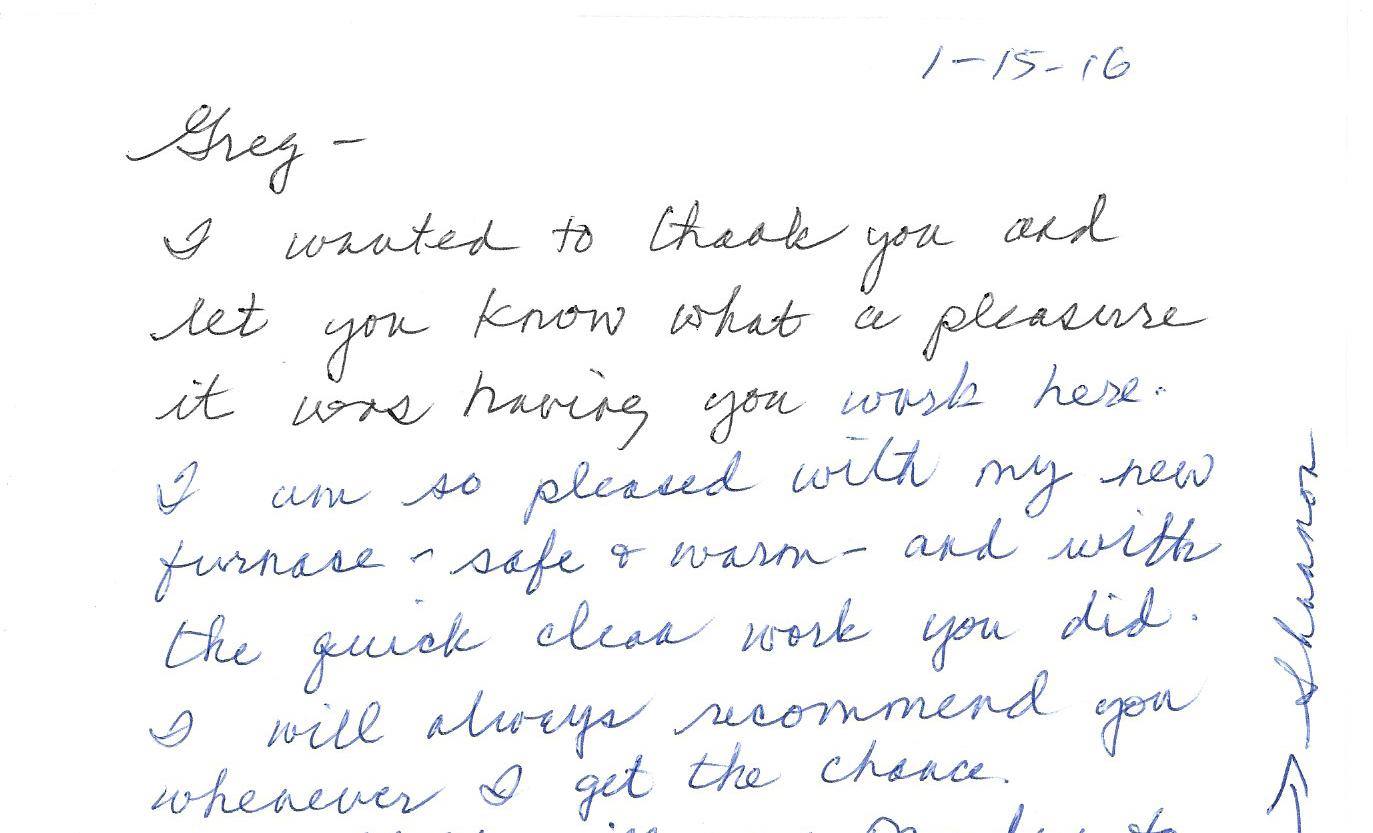 1-15-16
Greg -
I wanted to thank you and
let you know what a pleasure
it was having you work here.
I am so pleased with my new
furnase - safe & warm - and with
the quick clean work you did.
I will always recommend you
whenever I get the chance.
→ Shannon